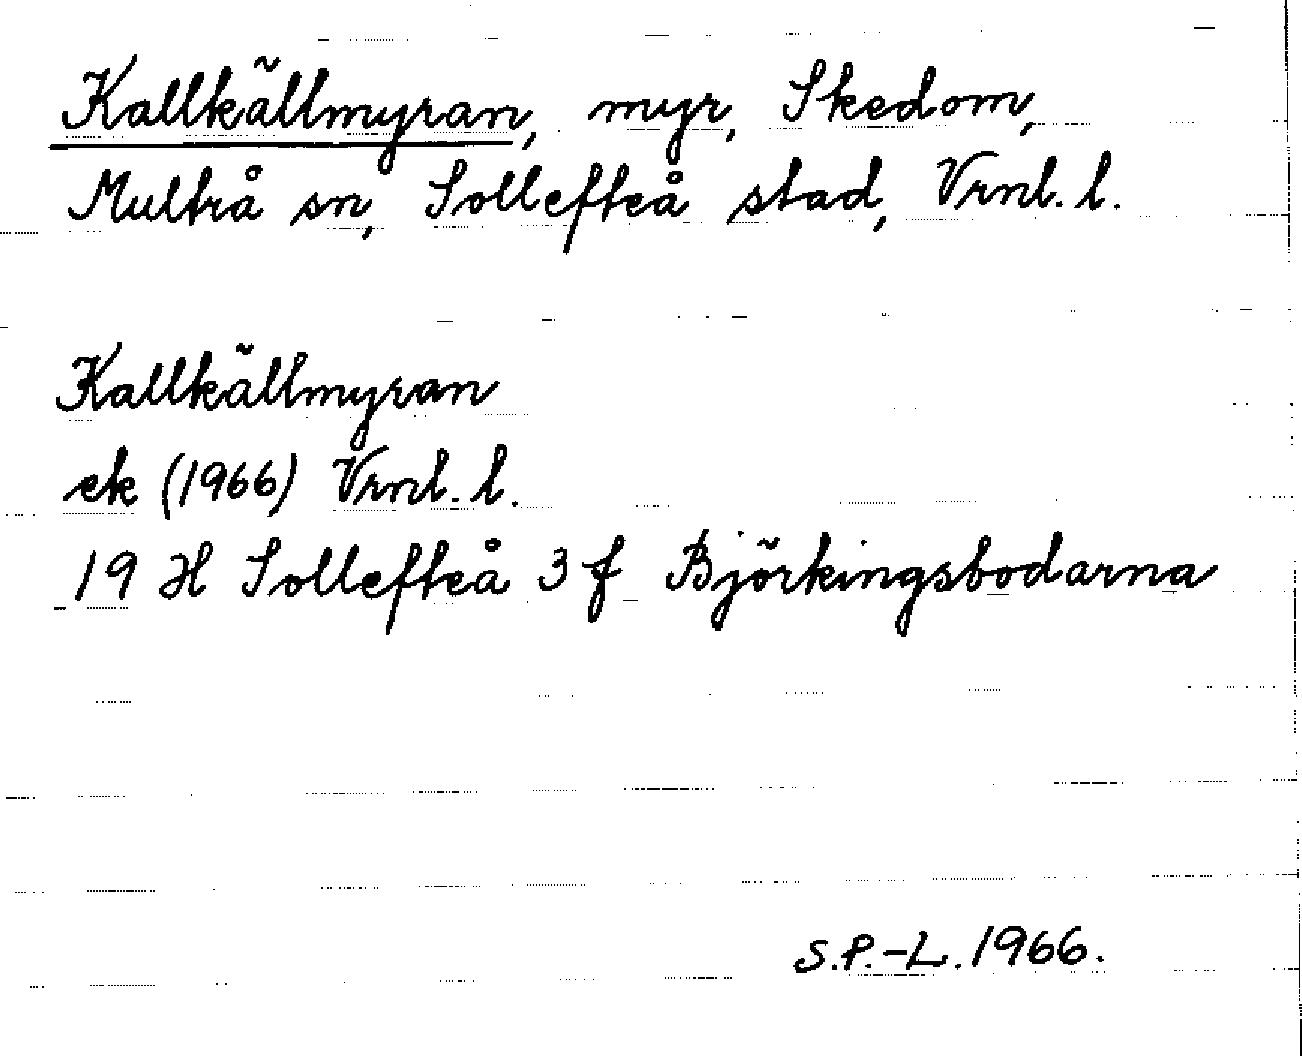 Kallkällmyran, myr, Skedom,
Multrå sn, Sollefteå stad, Vrnl. l.
Kallkällmyran
ek (1966) Vrnl. l.
19 H Sollefteå 3 f Björkingsbodarna
S.P.-L. 1966.